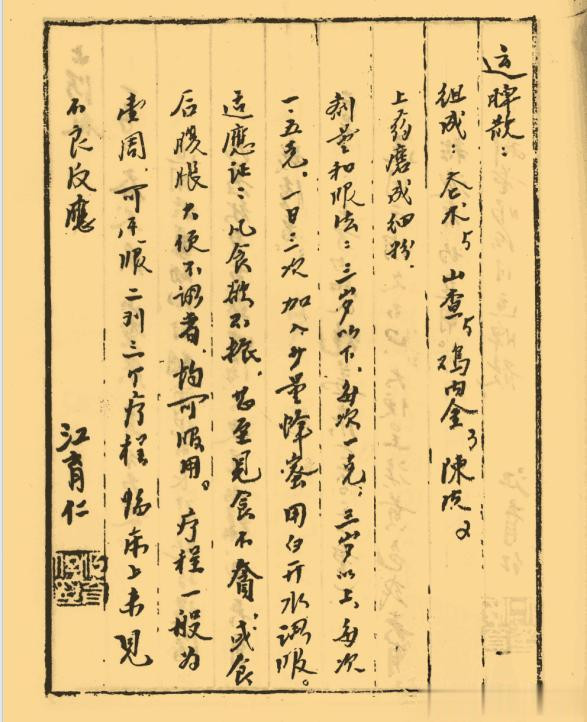 运脾散：
组成：苍术5 山查5 鸡内金3 陳皮2
上药磨成细粉.
剂量和服法：三岁以下，每次一克；三岁以上，每次
一.五克。一日三次 加入少量蜂蜜用白开水调服。
适應证：凡食欲不振，甚至見食不奮，或食
后腹胀大便不调者，均可服用。疗程一般为
壹周，可连服二到三个疗程 临床上未見
不良反應
江育仁